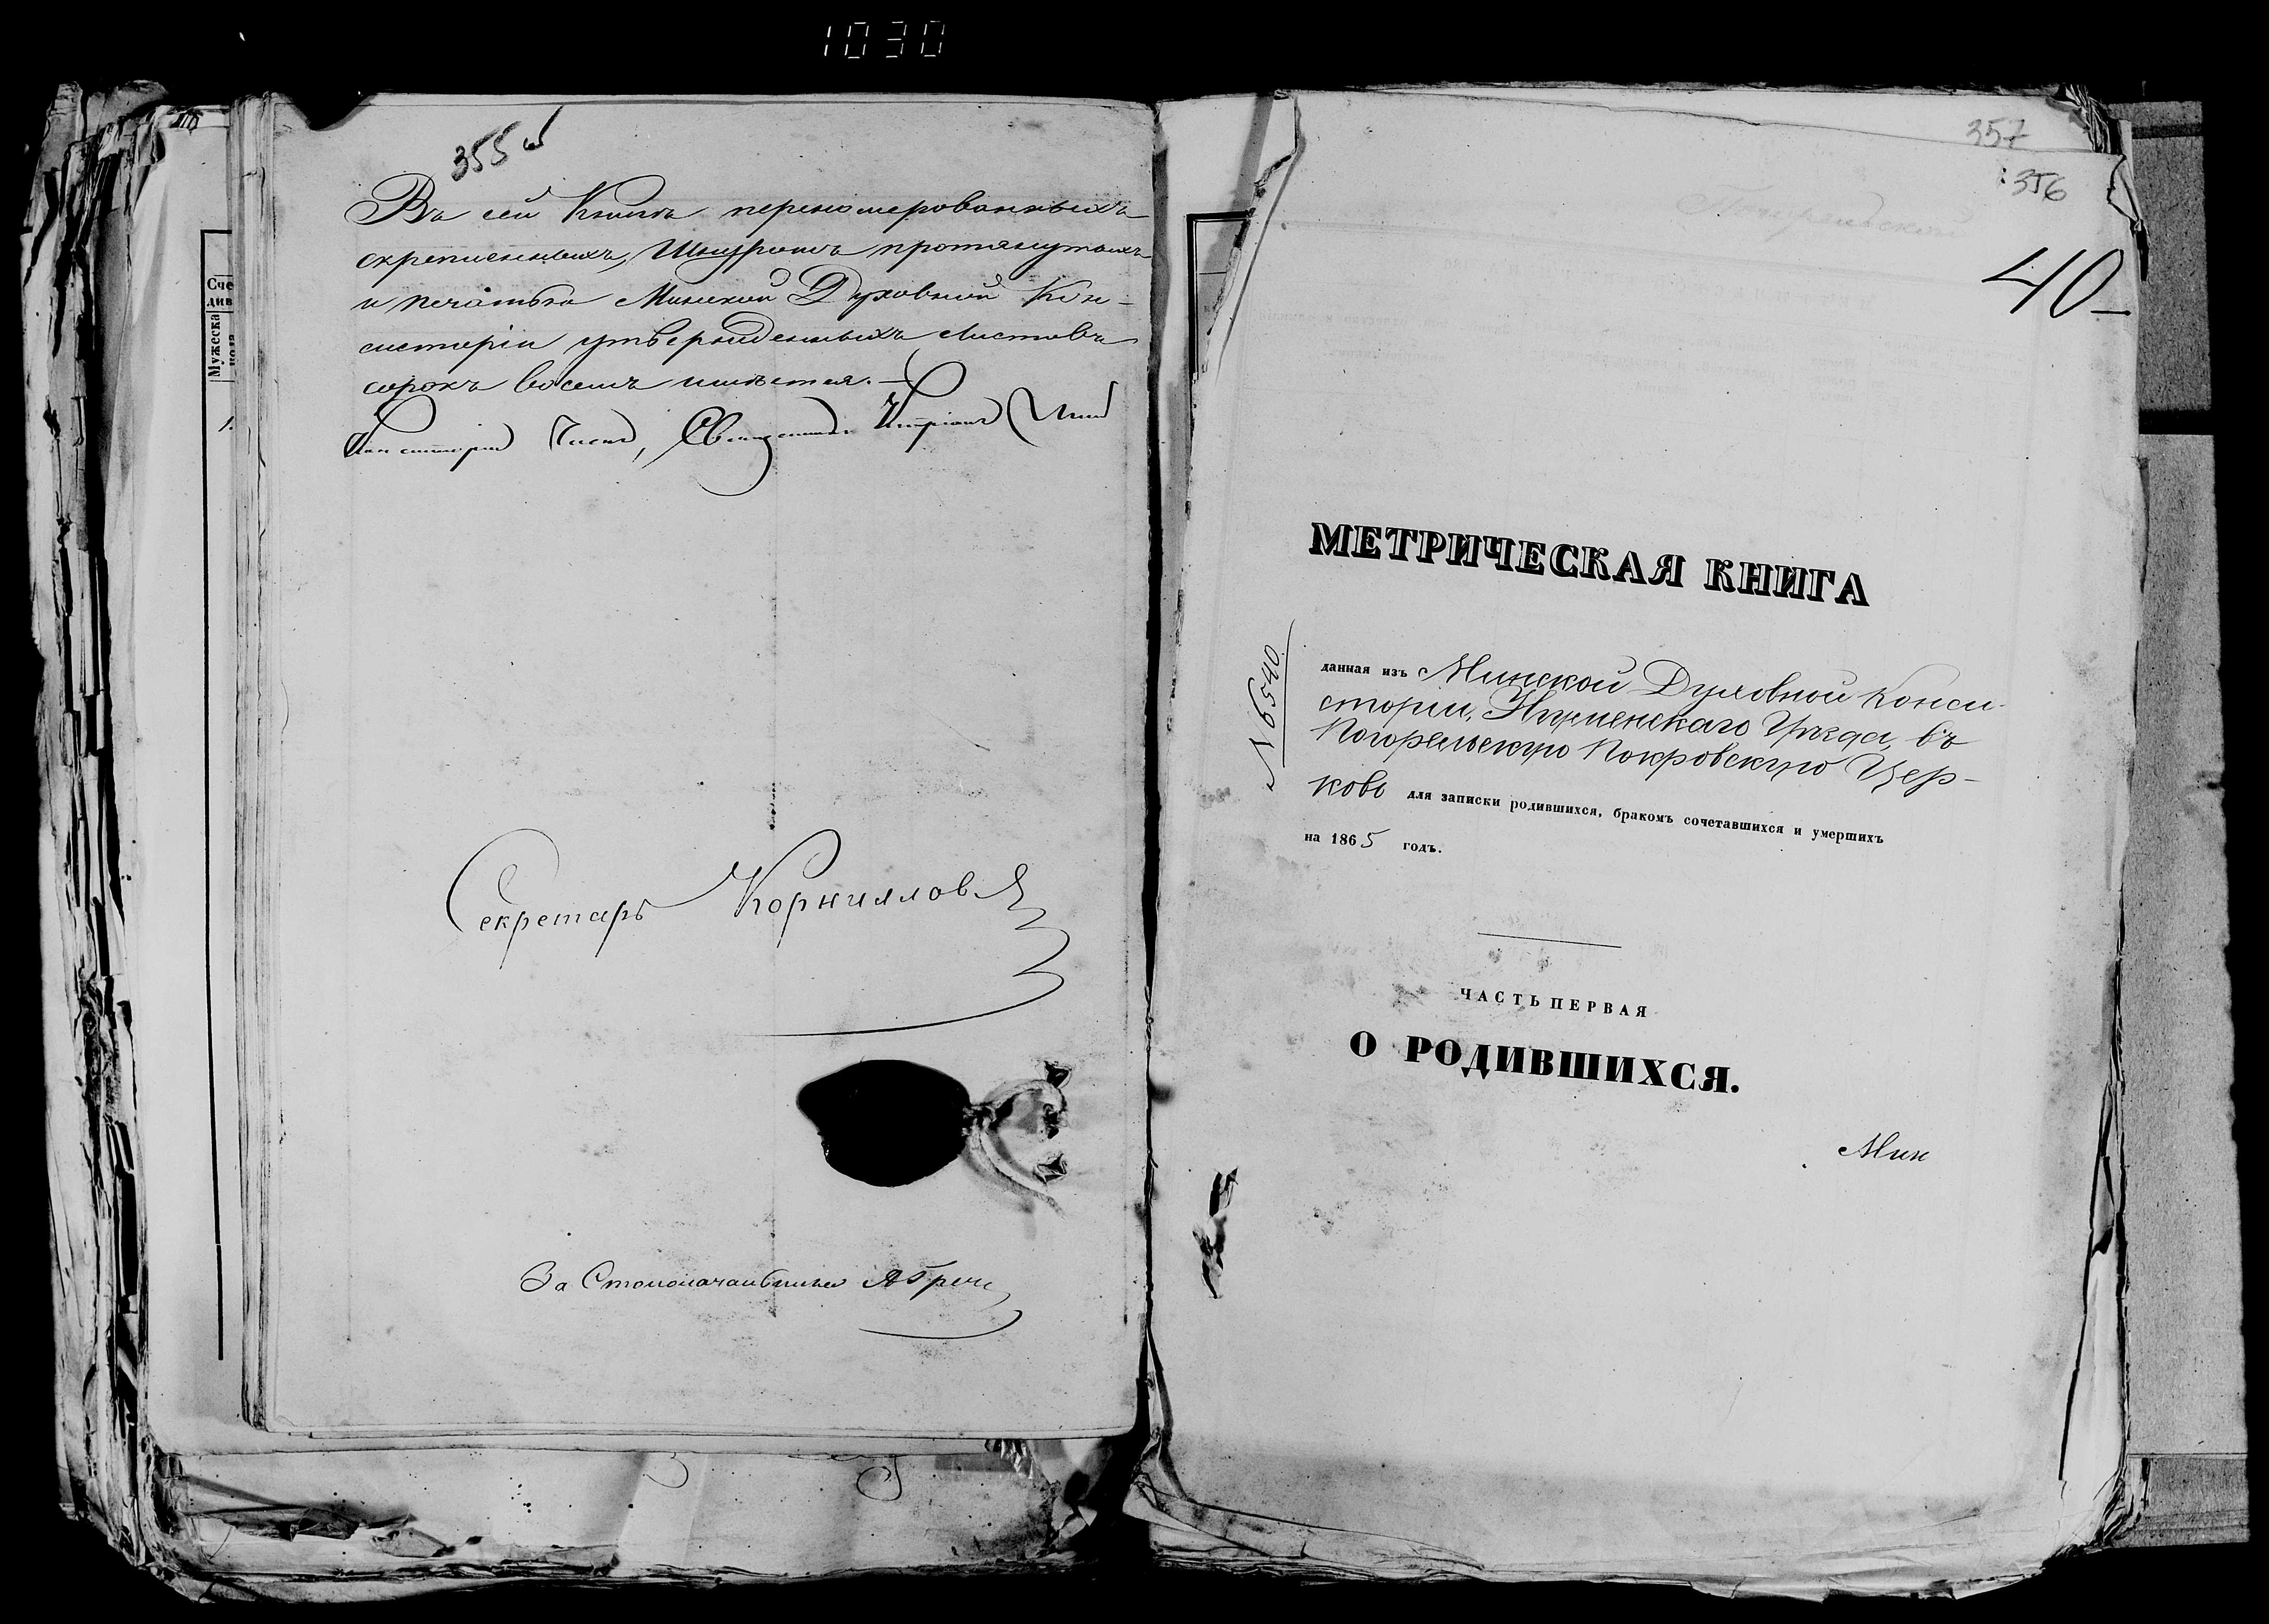 1030
355 об
Въ сей Книгѣ перенумерованныхъ
скрепленныхъ, Шнуромъ протянутыхъ
и печатью Минской Духовной Кон-
систоріи утвержденныхъ Листовъ
сорокъ восемь имѣется.
Консисторіи Членъ, Священникъ
Секретарь Корниловъ
За Столоначальника
Сче
див
Мужеска
пола
1.
357
356
40
МЕТРИЧЕСКАЯ КНИГА
№ 6540.
данная изъ Минской Духовной Конси-
сторіи, Игуменскаго Уѣзда, въ
Погорельскую Покровскую Цер-
ковь для записки родившихся, бракомъ сочетавшихся и умершихъ
на 1865 годъ.
ЧАСТЬ ПЕРВАЯ
О РОДИВШИХСЯ.
Мин